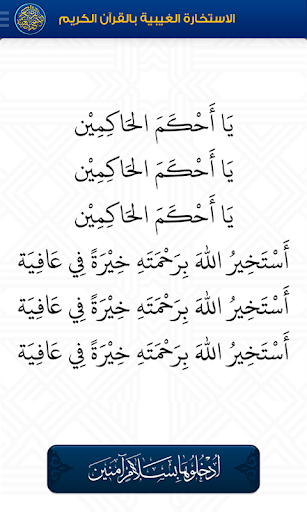 الاستخارة الغيبية بالقرآن الكريم
يَا أَحْكَمَ الحَاكِمِيْن
يَا أَحْكَمَ الحَاكِمِيْن
يَا أَحْكَمَ الحَاكِمِيْن
أَسْتَخِيرُ اللهَ بِرَحْمَتِهِ خِيْرَةً فِي عَافِيَة
أَسْتَخِيرُ اللهَ بِرَحْمَتِهِ خِيْرَةً فِي عَافِيَة
أَسْتَخِيرُ اللهَ بِرَحْمَتِهِ خِيْرَةً فِي عَافِيَة
اُدْخُلُوهَا بِسَلَامٍ آمِنِينَ